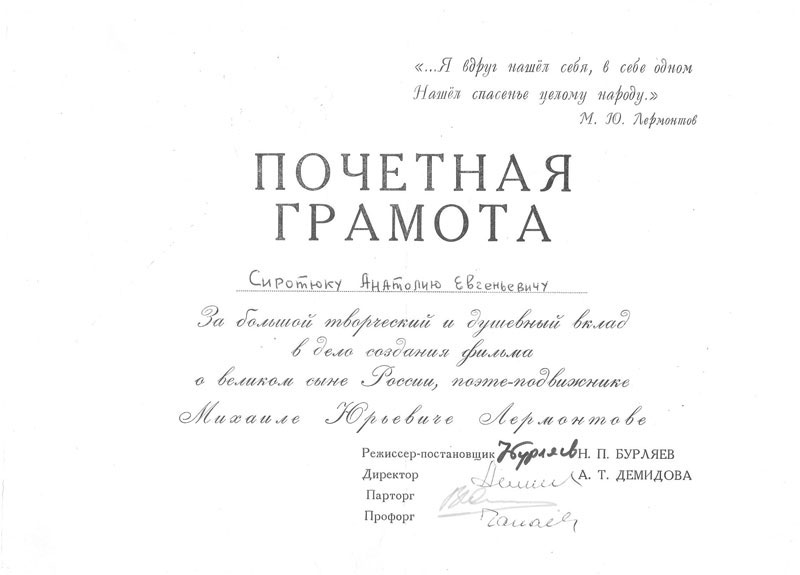 «...Я вдруг нашёл себя, в себе одном
Нашёл спасенье целому народу.»
М. Ю. Лермонтов
ПОЧЕТНАЯ
ГРАМОТА
Сиротюку Анатолию Евгеньевичу
За большой творческий и душевный вклад
в дело создания фильма
о великом сыне России, поэте-подвижнике
Михаиле Юрьевиче Лермонтове
Режиссер-постановщик Н. Бурляев Н. П. БУРЛЯЕВ
Директор А. Т. ДЕМИДОВА
Парторг
Профорг